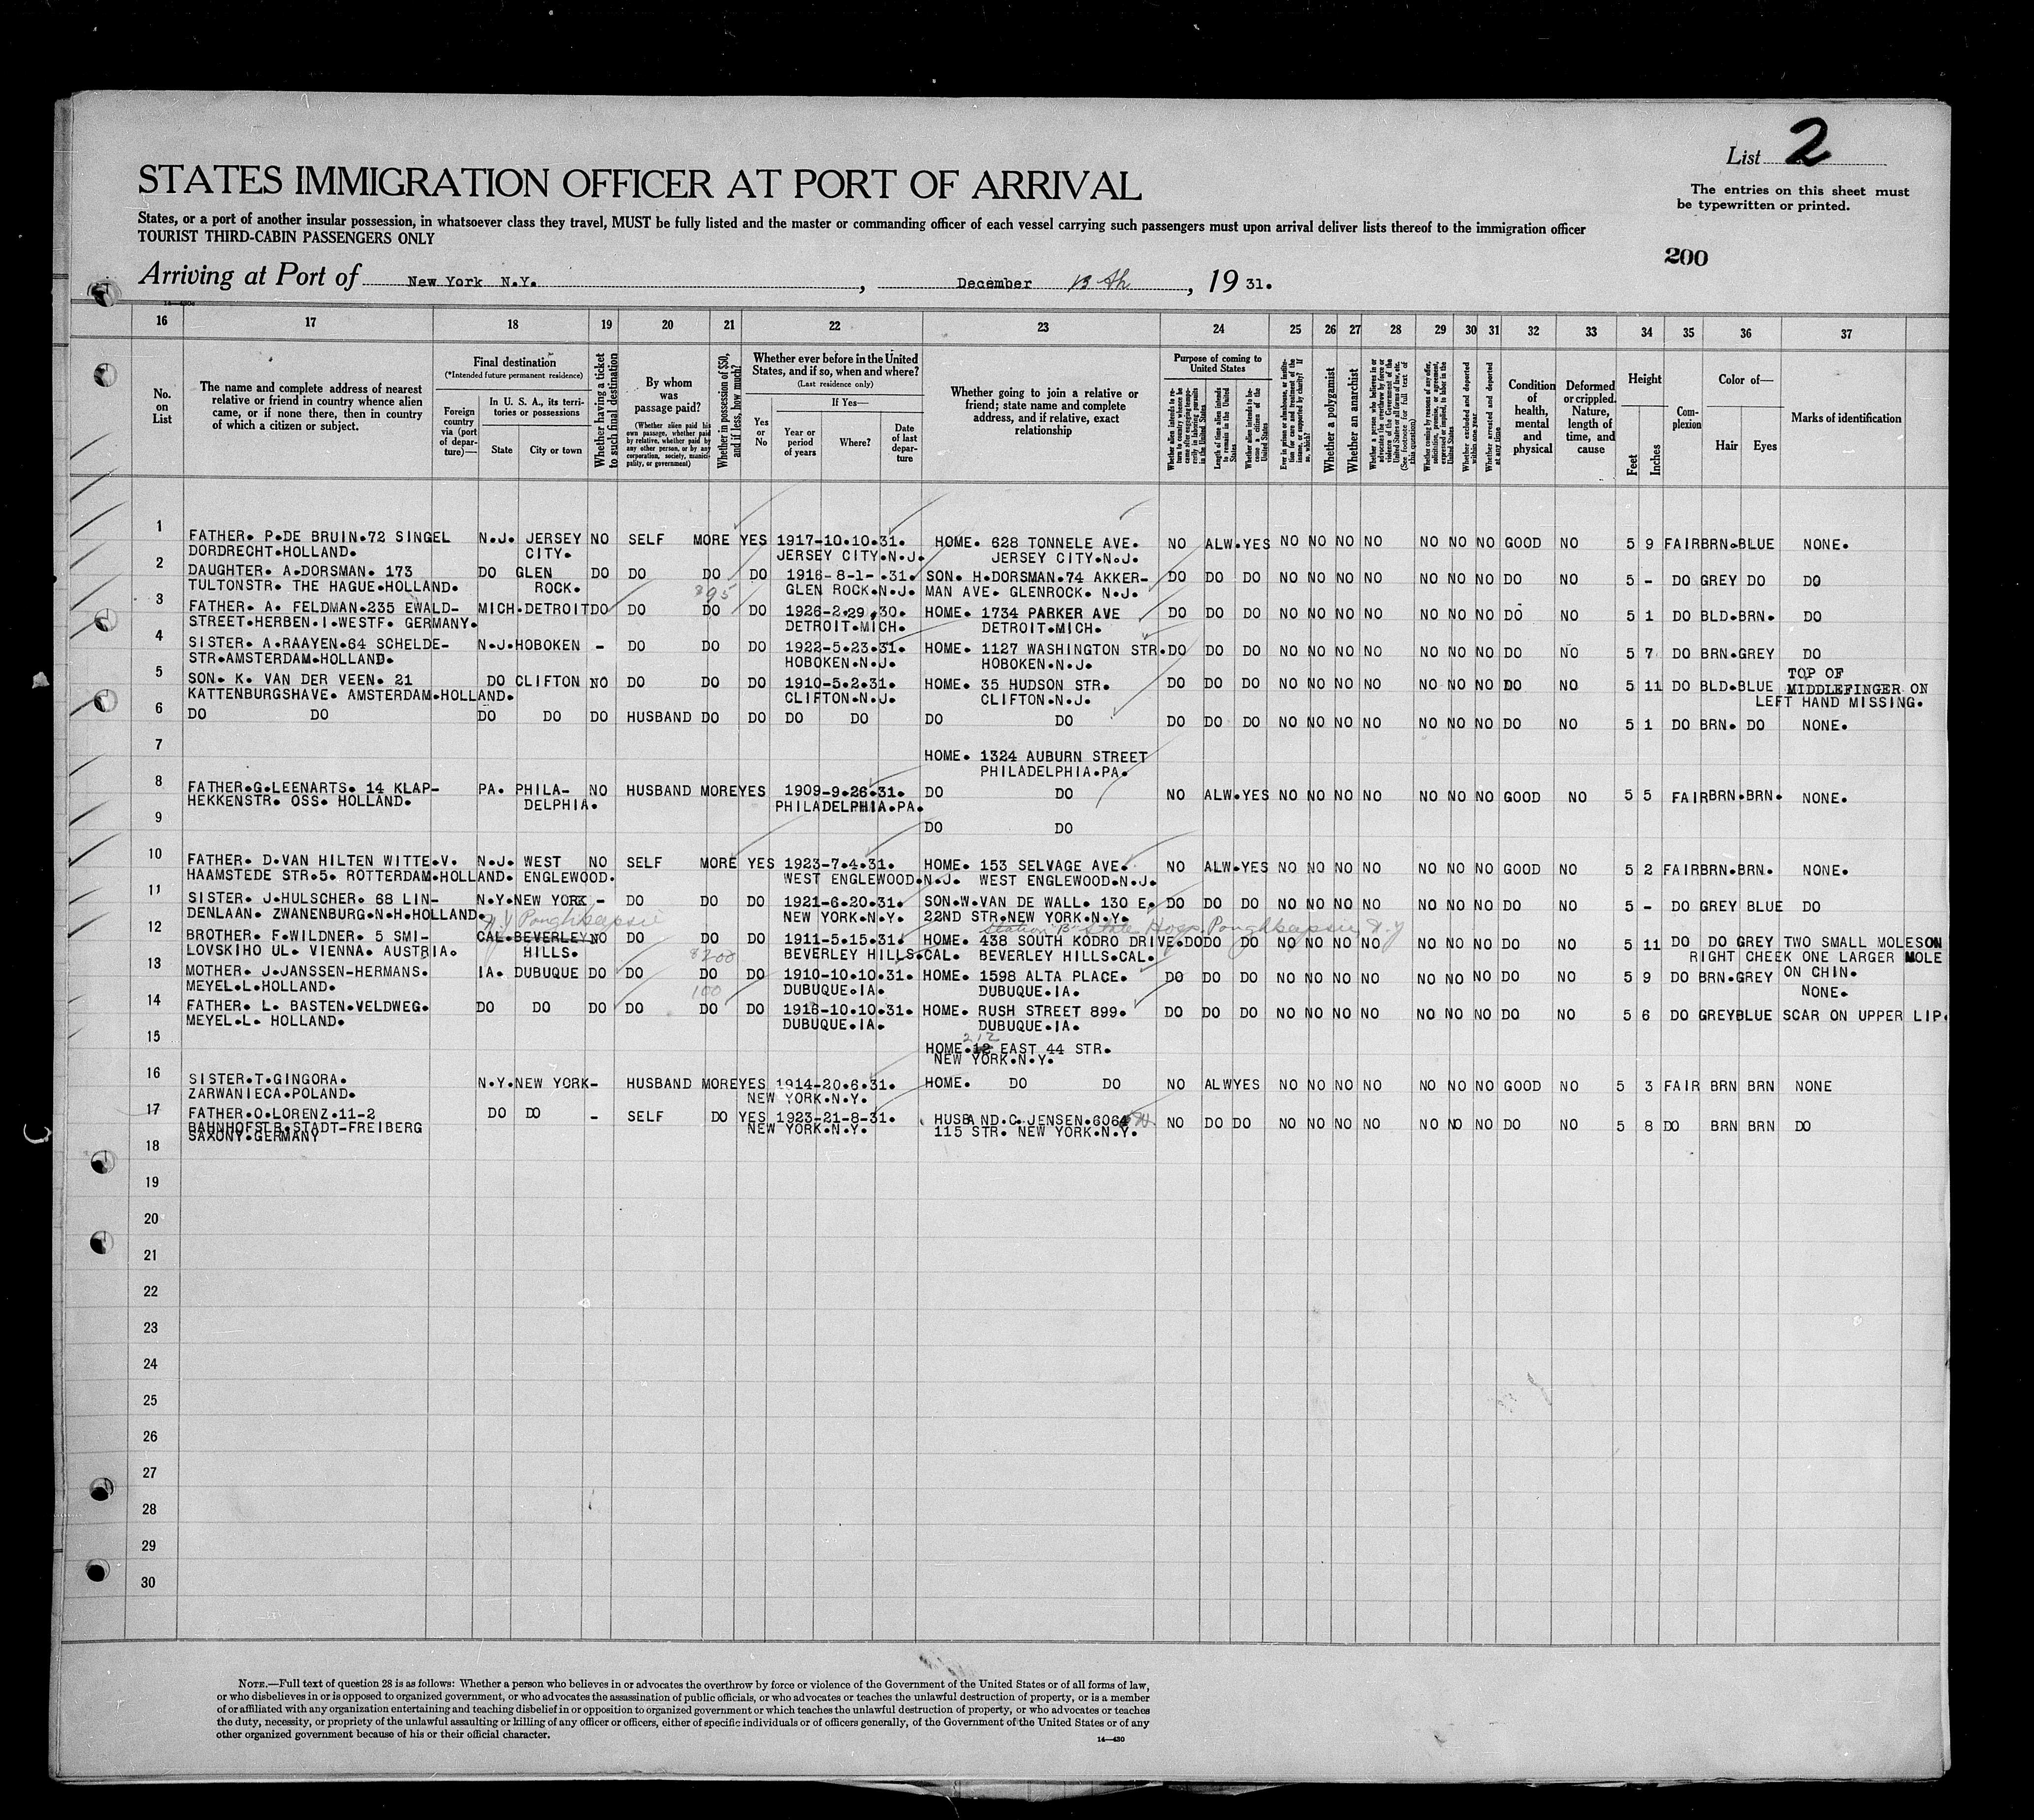 List 2
The entries on this sheet must
be typewritten or printed.
STATES IMMIGRATION OFFICER AT PORT OF ARRIVAL
States, or a port of another insular possession, in whatsoever class they travel, MUST be fully listed and the master or commanding officer of each vessel carrying such passengers must upon arrival deliver lists thereof to the immigration officer
TOURIST THIRD-CABIN PASSENGERS ONLY
200
Arriving at Port of New York N.Y., December 13th, 1931.
14-430
16 17 18 19 20 21 22 23 24 25 26 27 28 29 30 31 32 33 34 35 36 37
No. on List
The name and complete address of nearest
relative or friend in country whence alien
came, or if none there, then in country
of which a citizen or subject.
Final destination
(*Intended future permanent residence)
Foreign country via (port of departure)—
In U. S. A., its territories or possessions
State
City or town
Whether having a ticket to such final destination
By whom was passage paid?
(Whether alien paid his own passage, whether paid by relative, whether paid by any other person, or by any corporation, society, municipality, or government)
Whether in possession of $50, and if less, how much?
Whether ever before in the United
States, and if so, when and where?
(Last residence only)
Yes or No
If Yes—
Year or period of years
Where?
Date of last departure
Whether going to join a relative or
friend; state name and complete
address, and if relative, exact
relationship
Purpose of coming to United States
Length of time alien intends to remain in the United States
Whether alien intends to become a citizen of the United States
Whether a polygamist
Whether an anarchist
Whether excluded and deported within one year
Whether arrested and deported at any time
Condition of health, mental and physical
Deformed or crippled. Nature, length of time, and cause
Height
Feet
Inches
Complexion
Color of—
Hair
Eyes
Marks of identification
1 FATHER. P.DE BRUIN.72 SINGEL N.J. JERSEY NO SELF MORE YES 1917-10.10.31. HOME. 628 TONNELE AVE. NO ALW.YES NO NO NO NO NO NO NO GOOD NO 5 9 FAIR BRN.BLUE NONE.
DORDRECHT.HOLLAND. CITY. JERSEY CITY.N.J. JERSEY CITY.N.J.
2 DAUGHTER. A.DORSMAN. 173 DO GLEN DO DO DO DO 1916-8-1-.31. SON. H.DORSMAN.74 AKKER- DO DO DO NO NO NO NO NO NO NO DO NO 5 - DO GREY DO DO
TULTONSTR. THE HAGUE.HOLLAND. ROCK. GLEN ROCK.N.J. MAN AVE. GLENROCK. N.J.
3 FATHER. A. FELDMAN.235 EWALD- MICH.DETROIT DO DO DO DO 1926-2.29.30. HOME. 1734 PARKER AVE DO DO DO NO NO NO NO NO NO NO DO NO 5 1 DO BLD.BRN. DO
STREET.HERBEN.I.WESTF. GERMANY. DETROIT.MICH. DETROIT.MICH.
4 SISTER. A.RAAYEN.64 SCHELDE- N.J.HOBOKEN - DO DO DO 1922-5.23.31. HOME. 1127 WASHINGTON STR. DO DO DO NO NO NO NO NO NO NO DO NO 5 7 DO BRN.GREY DO
STR.AMSTERDAM.HOLLAND. HOBOKEN.N.J. HOBOKEN.N.J.
5 SON. K. VAN DER VEEN. 21 DO CLIFTON NO DO DO DO 1910-5.2.31. HOME. 35 HUDSON STR. DO DO DO NO NO NO NO NO NO NO DO NO 5 11 DO BLD.BLUE TOP OF MIDDLEFINGER ON
KATTENBURGSHAVE. AMSTERDAM.HOLLAND. CLIFTON.N.J. CLIFTON.N.J. LEFT HAND MISSING.
6 DO DO DO DO DO HUSBAND DO DO DO DO DO DO DO DO DO NO NO NO NO NO NO NO DO NO 5 1 DO BRN. DO NONE.
7 HOME. 1324 AUBURN STREET
PHILADELPHIA.PA.
8 FATHER.G.LEENARTS. 14 KLAP- PA. PHILA- NO HUSBAND MORE YES 1909-9.26.31. DO DO NO ALW.YES NO NO NO NO NO NO NO GOOD NO 5 5 FAIR BRN.BRN. NONE.
HEKKENSTR. OSS. HOLLAND. DELPHIA. PHILADELPHIA.PA.
9 DO DO
10 FATHER. D.VAN HILTEN WITTE.V. N.J. WEST NO SELF MORE YES 1923-7.4.31. HOME. 153 SELVAGE AVE. NO ALW.YES NO NO NO NO NO NO NO GOOD NO 5 2 FAIR BRN.BRN. NONE.
HAAMSTEDE STR.5. ROTTERDAM.HOLLAND. ENGLEWOOD. WEST ENGLEWOOD.N.J. WEST ENGLEWOOD.N.J.
11 SISTER. J.HULSCHER. 68 LIN- N.Y.NEW YORK - DO DO DO 1921-6.20.31. SON.W.VAN DE WALL. 130 E. DO DO DO NO NO NO NO NO NO NO DO NO 5 - DO GREY BLUE DO
DENLAAN. ZWANENBURG.N.H.HOLLAND. NEW YORK.N.Y. 22ND STR.NEW YORK.N.Y.
N.Y Poughkeepsie Station "B" State Hosp. Poughkeepsie, N.Y
12 BROTHER. F.WILDNER. 5 SMI- CAL.BEVERLEY NO DO DO DO 1911-5.15.31. HOME. 438 SOUTH KODRO DRIVE. DO DO DO NO NO NO NO NO NO NO DO NO 5 11 DO DO GREY TWO SMALL MOLES ON
LOVSKIHO UL. VIENNA. AUSTRIA. HILLS. BEVERLY HILLS.CAL. BEVERLY HILLS.CAL. RIGHT CHEEK ONE LARGER MOLE
ON CHIN.
13 MOTHER. J.JANSSEN-HERMANS. IA. DUBUQUE DO DO DO DO 1910-10.10.31. HOME. 1598 ALTA PLACE. DO DO DO NO NO NO NO NO NO NO DO NO 5 9 DO BRN.GREY NONE.
MEYEL.L.HOLLAND. 100 DUBUQUE.IA. DUBUQUE.IA.
14 FATHER. L. BASTEN.VELDWEG. DO DO DO DO DO DO 1916-10.10.31. HOME. RUSH STREET 899. DO DO DO NO NO NO NO NO NO NO DO NO 5 6 DO GREY BLUE SCAR ON UPPER LIP.
MEYEL.L. HOLLAND. DUBUQUE.IA. DUBUQUE.IA.
15 212
HOME.12 EAST 44 STR.
NEW YORK.N.Y.
16 SISTER.T.GINGORA. N.Y.NEW YORK- HUSBAND MORE YES 1914-20.6.31. HOME. DO DO NO ALW YES NO NO NO NO NO NO NO GOOD NO 5 3 FAIR BRN BRN NONE
ZARWANIECA.POLAND. NEW YORK.N.Y.
17 FATHER.O.LORENZ.11-2 DO DO - SELF DO YES 1923-21-8-31. HUSBAND.C.JENSEN.6064 NO DO DO NO NO NO NO NO NO NO DO NO 5 8 DO BRN BRN DO
BAHNHOFSTR.STADT-FREIBERG NEW YORK.N.Y. 115 STR. NEW YORK.N.Y.
SAXONY.GERMANY
18
19
20
21
22
23
24
25
26
27
28
29
30
NOTE.—Full text of question 28 is as follows: Whether a person who believes in or advocates the overthrow by force or violence of the Government of the United States or of all forms of law,
or who disbelieves in or is opposed to organized government, or who advocates the assassination of public officials, or who advocates or teaches the unlawful destruction of property, or is a member
of or affiliated with any organization entertaining and teaching disbelief in or opposition to organized government or which teaches the unlawful destruction of property, or who advocates or teaches
the duty, necessity, or propriety of the unlawful assaulting or killing of any officer or officers, either of specific individuals or of officers generally, of the Government of the United States or of any
other organized government because of his or their official character.
14—430